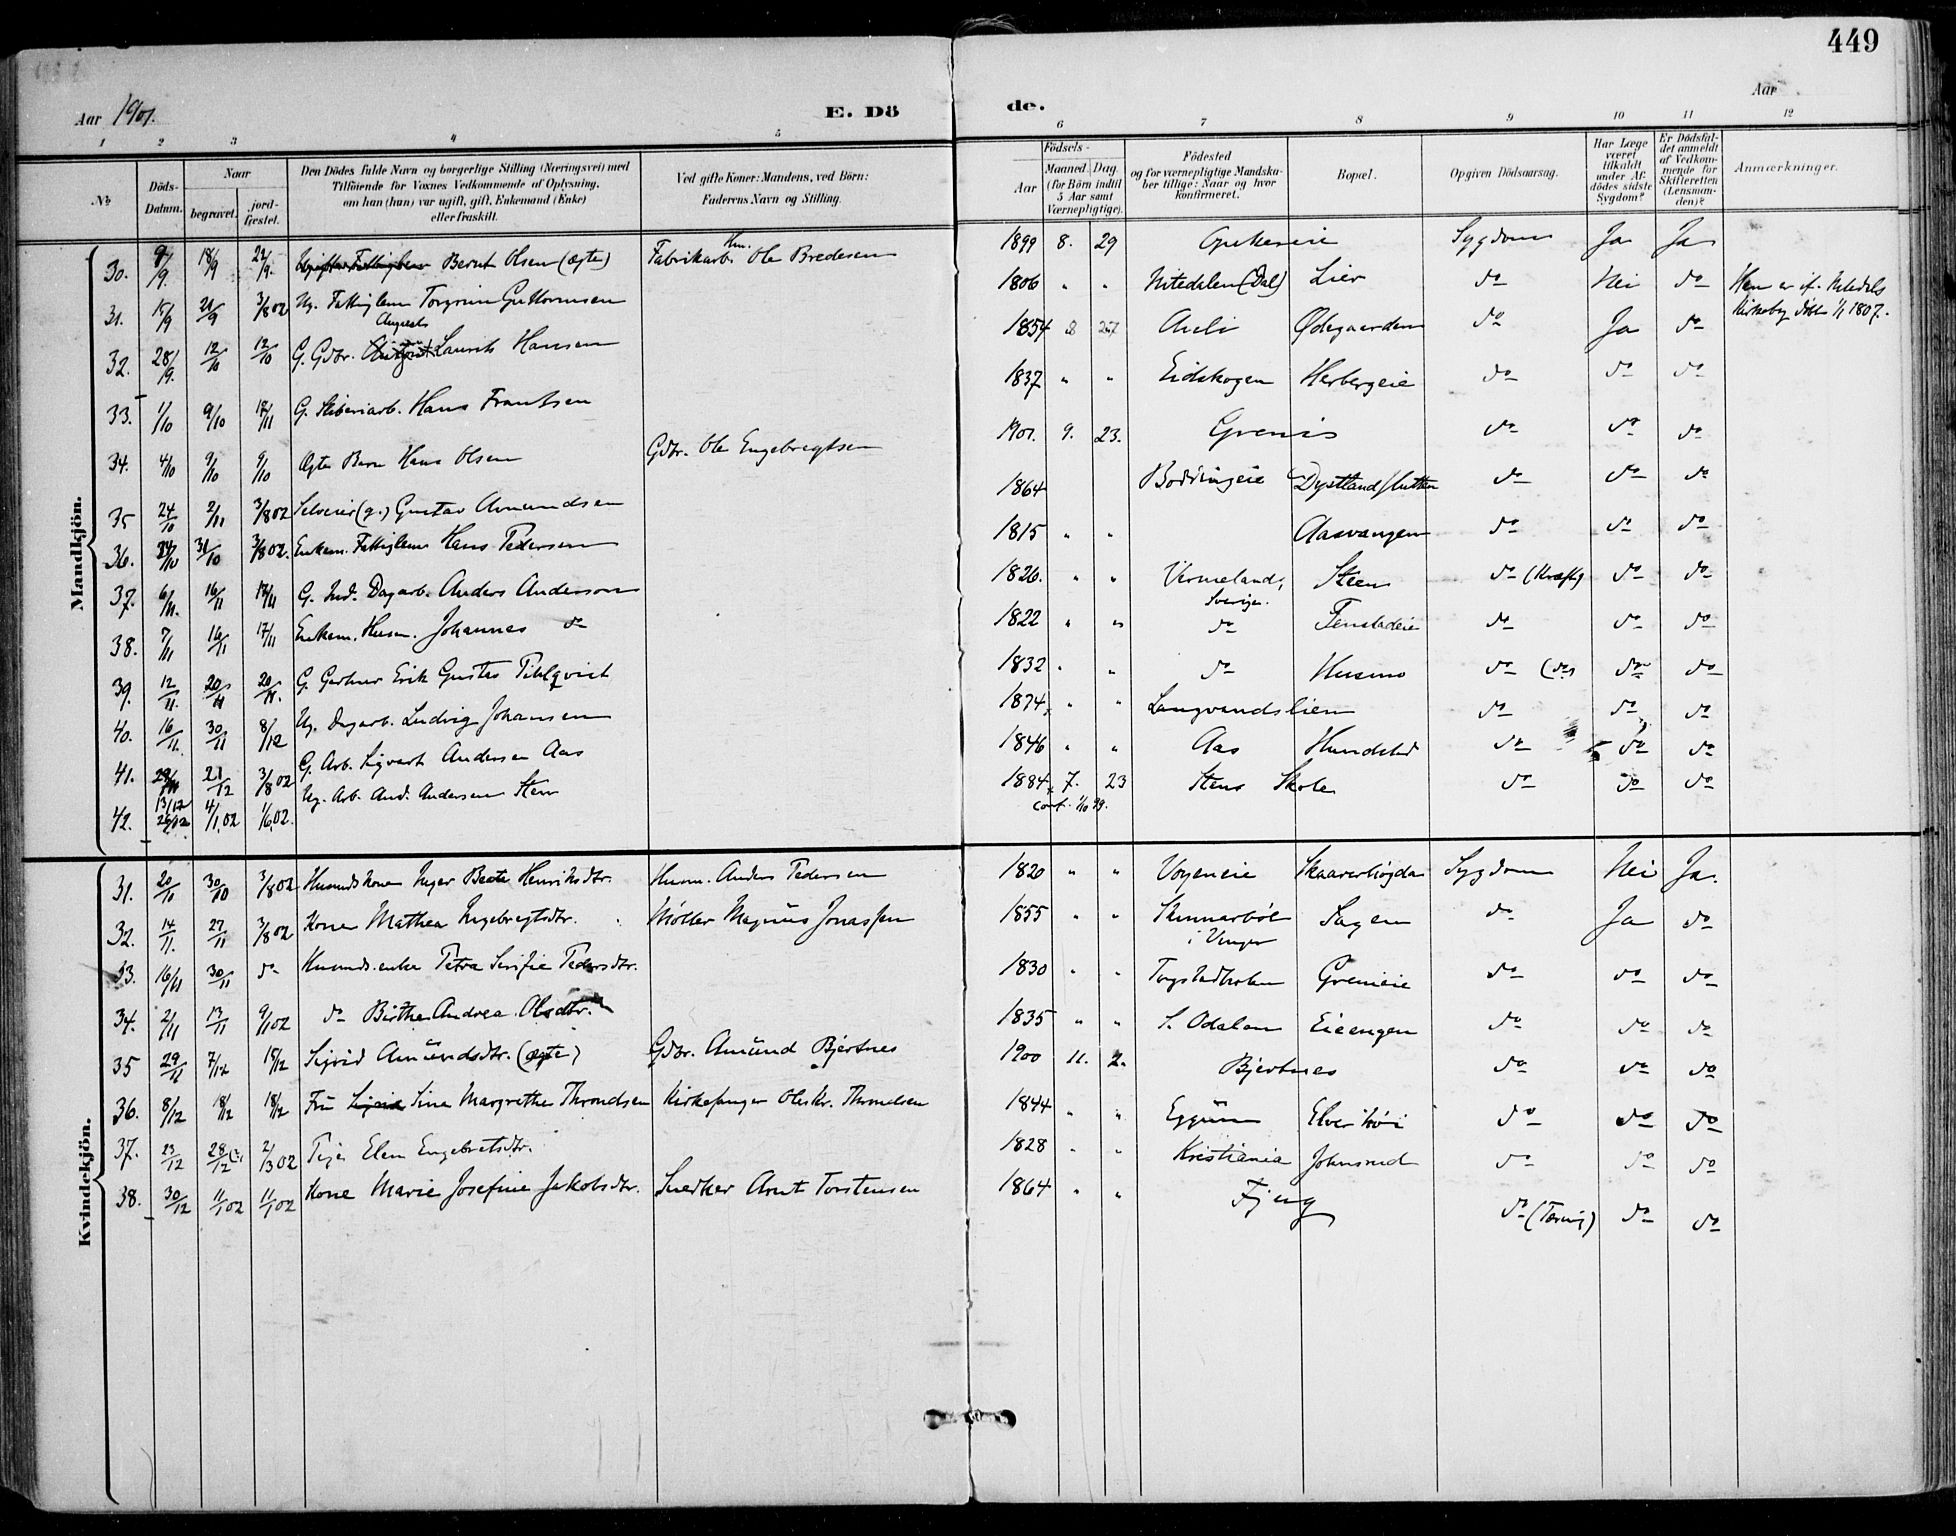 449
Aar 1901.
E. Dö de.
Aar
1 2 3 4 5 6 7 8 9 10 11 12
No
Döds-Datum.
Naar
begravet. jord-fæstet.
Den Dödes fulde Navn og borgerlige Stilling (Næringsvei) med
Tilföiende for Voxnes Vedkommende af Oplysning,
om han (hun) var ugift, gift, Enkemand (Enke)
eller fraskilt.
Ved gifte Koner: Mandens, ved Börn:
Faderens Navn og Stilling.
Födsels-
Aar Maaned. Dag.
(for Börn indtil
5 Aar samt
Værnepligtige).
Födested
og for værnepligtige Mandska-
ber tillige: Naar og hvor
konfirmeret.
Bopæl.
Opgiven Dödsaarsag.
Har Læge
været
tilkaldt
under Af-
dödes sidste
Sygdom?
Er Dödsfal-
det anmeldt
af Vedkom-
mende for
Skifteretten
(Lensman-
den)?
Anmærkninger.
Mandkjön.
30. 9/9. 18/9 22/9. Bernt Olsen (ægte) Fabrikarb. Ole Bredesen 1899 8. 29 Sygdom Ja Ja
31. 15/9 21/9 3/8 02 Ug. Fattiglem Torgrim Guttormsen 1806 " " Nitedalen (Dal) Lier do Nei do Han er if. Nitedals
Kirkebog döbt 1/1 1807.
32. 28/9. 12/10 12/10 G. Gdbr. August Laurits Hansen 1854 8 27 Auli Ødegaarden do Ja do
33. 1/10 9/10 17/11 G. Sliberiarb. Hans Frantsen 1837 " " Eidskogen Herbergeie do do do
34. 4/10 9/10 9/10 Ægte Barn Hans Olsen Gdbr. Ole Engebregtsen 1901. 9. 23. Grenis do do do
35 24/10 2/11 3/8 02 Selveier (g.) Gustav Amundsen 1864 Boddingeie do do do
36. 24/10 31/10 3/8 02. Enkem. Fattiglem Hans Pedersen 1815 " " Aasvangen do do do
37. 6/11. 16/11 17/11 G. Ind. Dagarb. Anders Anderson 1826. " " Vermeland, Sverige. Steen do (Kræft) do do
38. 7/11 16/11 17/11 Enkem. Husm. Johannes do 1822 " " do Fenstadeie do do do
39. 12/11. 20/11 20/11. G. Gartner Erik Gustav Pihlqvist 1832 " " do Husmo do (do) do do
40. 16/11. 30/11 8/12 Ug. Dagarb. Ludvig Johansen 1874 " " Langvandslien do do do
41. 21/12 3/8 02 G. Arb. Sigvart Andersen Aas 1846 " " Aas Hundstad do do do
42. 13/12 4/1.02 1/6.02. Ug. Arb. And. Andersen Steen 1884 7. 23 Stens Skole do do do
conf. 1/10 99.
Kvindekjön.
31. 20/10 30/10 3/8 02 Husmdskone Inger Beate Henriksdtr. Husm. Anders Pedersen 1820 " " Voyeneie Skaarerhögda Sygdom Nei Ja.
32. 14/11. 27/11 3/8 02 Kone Mathea Ingebregtsdtr. Möller Magnus Jonassen 1855 " " Skinnarböl i Vinger Sagen do Ja do
33. 16/11 30/11 do Husmds.enke Petra Serifie Pedersdtr. 1830 " " Grenieie do do do
34. 2/11 13/11 9/1 02 do Birthe Andrea Olsdtr. 1835 " " S. Odalen Eieengen do do do
35 29/11 7/12 15/12 Sigrid Amundsdtr. (ægte) Gdbr. Amund Bjertnes 1900 11. 2. Bjertnes do do do
36. 8/12 18/12 18/12 Fru Sina Margrethe Throndsen Kirkesanger Ole Kr. Throndsen 1844 " " Eggum Elverhöi do do do
37. 23/12 28/12 2/3 02 Pige Elen Engebretsdtr. 1828 " " Kristiania Johnsrud do do do
38. 30/12 11/1 02 11/1 02 Kone Marie Josefine Jakobsdtr. Snedker Arnt Torstensen 1864 " " Fjeng do (Tæring) do do